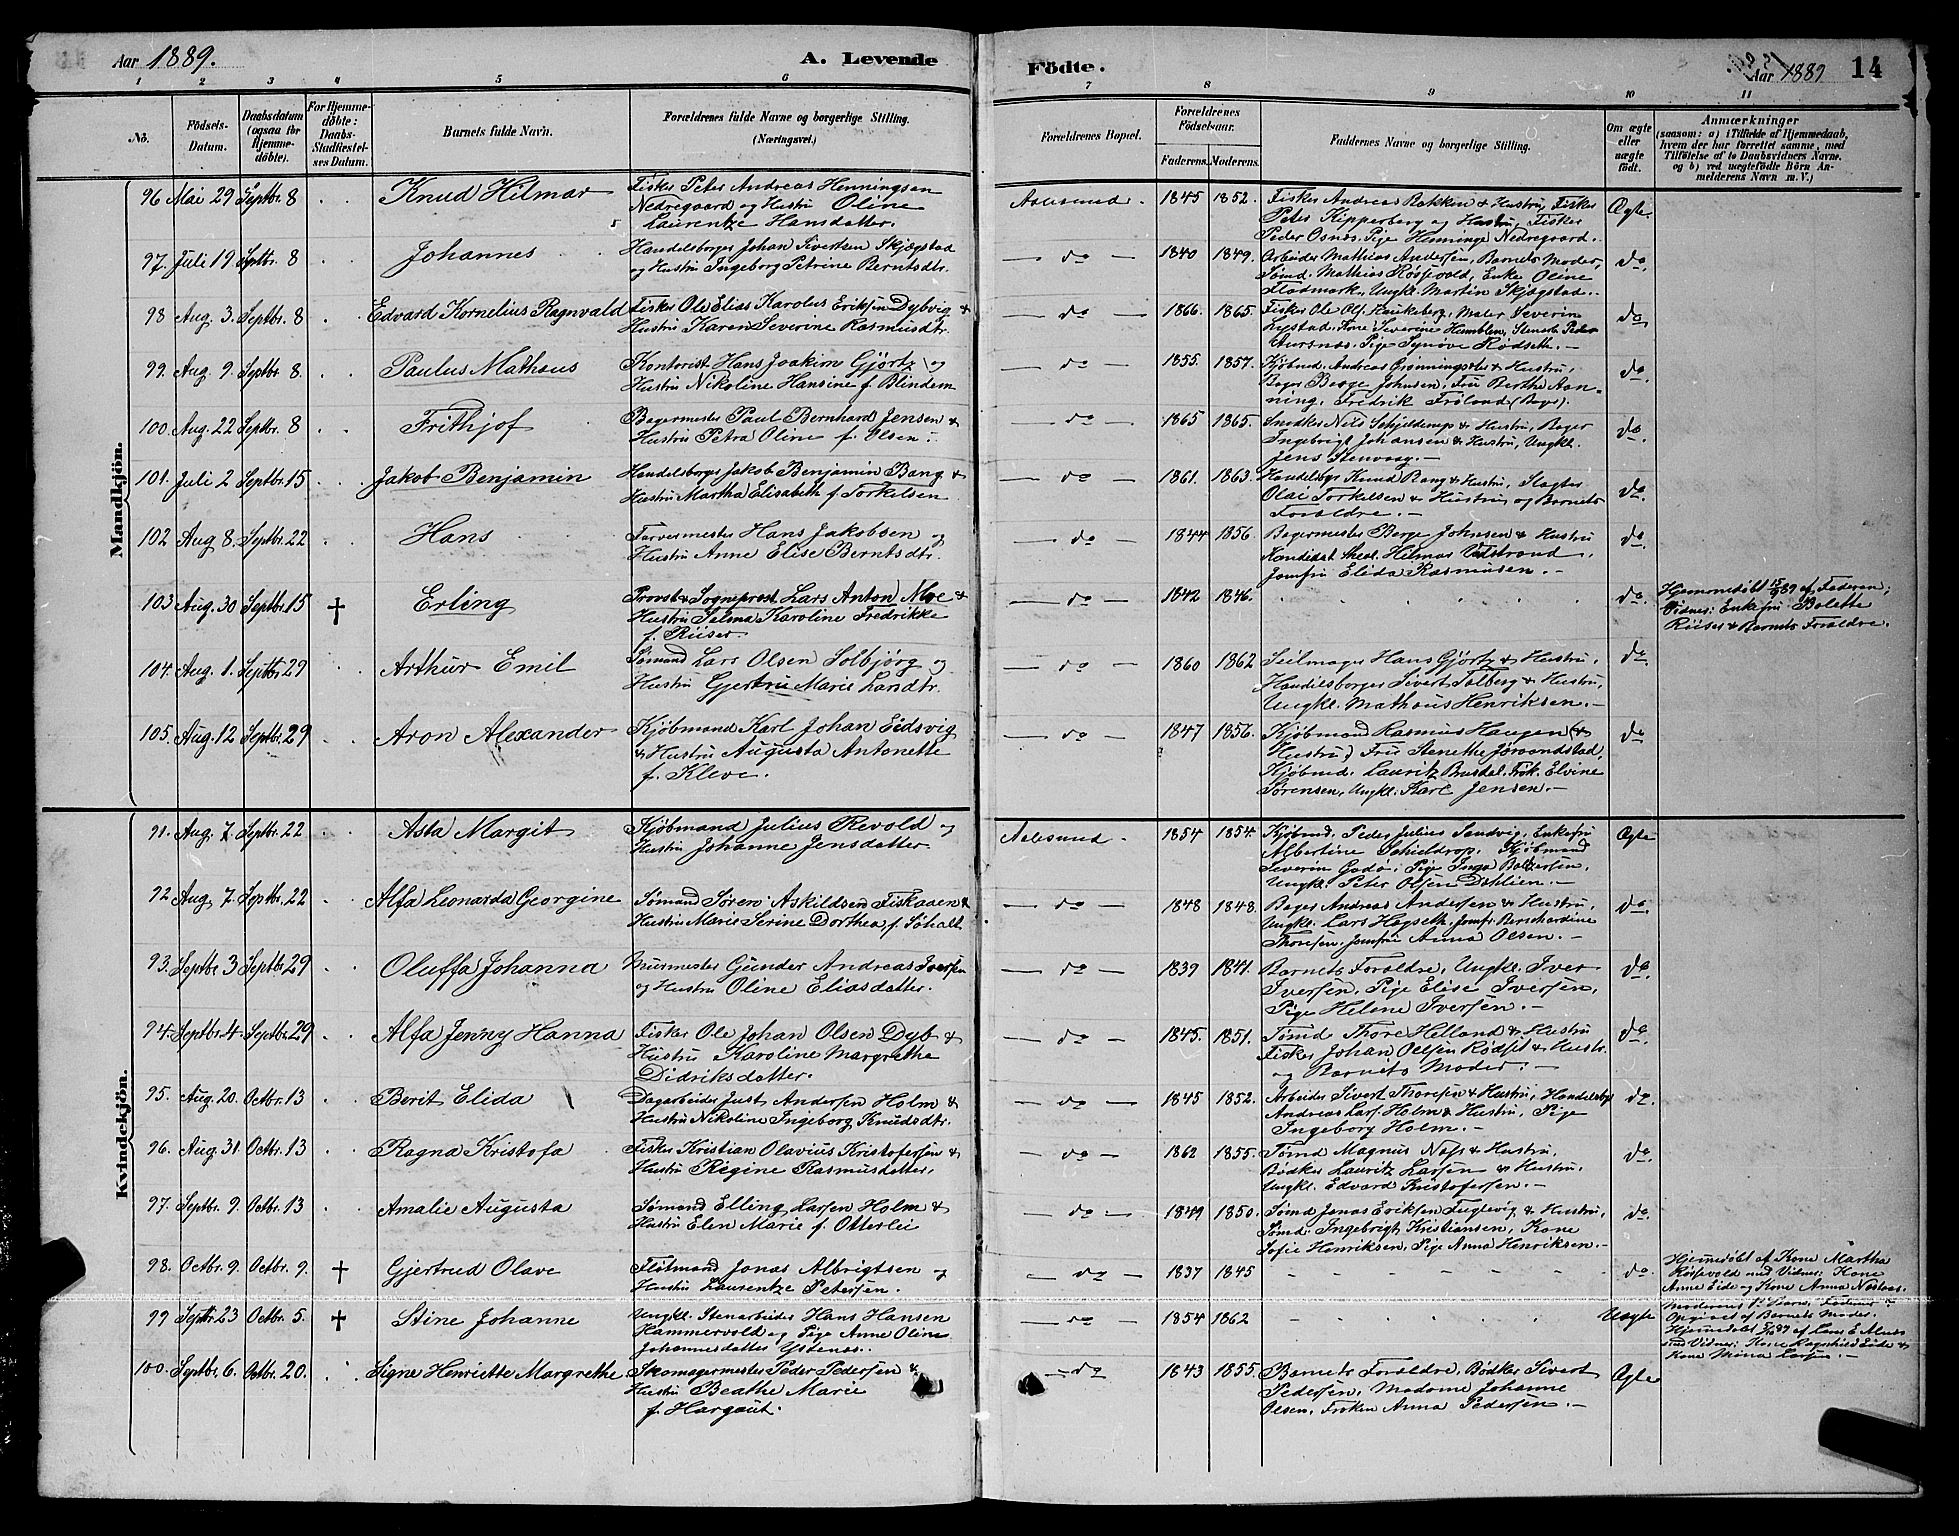 Aar 1889.
A. Levende
Födte.
Aar 1889
14
1 2 3 4 5 6 7 8 9 10 11
No.
Födsels-Datum.
Daabsdatum (ogsaa for Hjemmedöbte).
For Hjemmedöbte: Daabs-Stadfæstelses Datum.
Barnets fulde Navn.
Forældrenes fulde Navne og borgerlige Stilling.
(Næringsvei.)
Forældrenes Bopæl.
Forældrenes Födselsaar.
Faderens. Moderens.
Faddernes Navne og borgerlige Stilling.
Om ægte eller uægte födt.
Anmærkninger
(saasom: a) i Tilfælde af Hjemmedaab, hvem der har forrettet samme, med Tilföielse af to Daabsvidners Navne. og b) ved uægtefödte Börn Anmelderens Navn m. V.)
Mandkjön.
96 Mai 29 Septbr. 8 Knud Hilmar Fisker Peter Andreas Henningsen Aalesund. 1845 1852. Fisker Andreas Bakken & Hustru, Fisker Ægte.
Nedregaard og Hustru Oline Peter Kipperberg og Hustru, Fisker
Laurentze Hansdatter. Peder Osnes, Pige Henninge Nedregaard.
97. Juli 19. Septbr. 8 Johannes Handelsborger Johan Sivertsen Skjægstad do 1840 1849. Arbeider Mathias Andersen, Barnets Moder, do.
og Hustru Ingeborg Petrine Berntsdtr. Tømd. Mathias Røsevold, Enke Oline
Flodmark, Ungkl. Martin Skjægstad.
98 Aug. 3. Septbr. 8 Edvard Kornelius Ragnvald Fisker Ole Elias Karolus Eriksen Dybvig & do 1866. 1865. Fisker Ole Ols. Haukeberg, Maler Severin do
Hustru Karen Severine Rasmusdtr. Lystad, Frue Severine Humblen, Peder
Aursnæs, Pige Synøve Rødseth.
99. Aug. 9. Septbr. 8. Paulus Mathæus Kontorist Hans Joakim Gjörtz og do 1855. 1857. Kjøbmd. Andreas Grønningsæter & Hustru, do.
Hustru Nikoline Hansine f. Blindem Bager Børge Johnsen, Fru Berthe
Fredrik Frøland (Bager).
100. Aug. 22 Septbr. 8 Frithjof Bagermester Paul Bernhard Jensen & do 1865 1865. Snedker Nils Schjelderup & Hustru, Bager do.
Hustru Petra Oline f. Olsen. Ingebrigt Johansen & Hustru, Ungkl.
Jens Stenvaag.
101. Juli 2 Septbr. 15 Jakob Benjamin Handelsborger Jakob Benjamin Bang & do 1861. 1863. Handelsbgr. Knud Bang & Hustru, Slagter do.
Hustru Martha Elisabeth f. Torkelsen Olai Torkelsen & Hustru, og Barnets
Forældre.
102 Aug 8. Septbr. 22 Hans Farvermester Hans Jakobsen og do 1844 1856 Bagermester Børge Johnsen & Hustru do.
Hustru Anne Elise Berntsdtr. Kandidat theol. Hilmar Vatstrand,
Jomfru Elida Rasmusen.
103 Aug. 30 Septbr. 15 † Erling Provst & Sogneprest Lars Anton Moe & do 1842 1846. do. Hjemmedøbt 15/9 89 af Faderen;
Hustru Selma Karoline Fredrikke Vidner: Enkefru Bolette
f. Riiser Riiser & Barnets Forældre.
104. Aug. 1. Septbr. 29 Arthur Emil Sømand Lars Olsen Solbjørg og do 1860 1862 Seilmager Hans Gjörtz & Hustru, do
Hustru Gjertrue Marie Larsdtr. Handelsborger Sivert Solberg & Hustru,
Ungkl. Mathæus Henriksen.
105. Aug. 12 Septbr. 29 Aron Alexander Kjøbmand Karl Johan Eidsvig do 1847 1856. Kjøbmand Rasmus Haugen (& do
& Hustru Augusta Antonette Hustru) Fru Stenethe Jøraandstad,
f. Kleve. Kjøbmd. Lauritz Brusdal, Frøk. Elvine
Sørensen, Ungkl. Karl Jensen.
Kvindekjön.
91. Aug. 7. Septbr. 22 Asta Margit Kjøbmand Julius Revold og Aalesund. 1854 1854. Kjøbmd. Peder Julius Sandvig, Enkefru Ægte
Hustru Johanne Jensdatter Albertine Schieldrop, Kjøbmand
Severin Godø, Pige Inga
Ungkl. Peter Olsen Dahlien.
92 Aug. 7. Septbr. 22 Alfa Leonarda Georgine Sømand Søren Askildsen Fiskaaen & do 1848 1848. Bager Andreas Andersen & Hustru, do.
Hustru Marie Serine Dorthea f. Soholt Ungkl. Lars Hegseth, Jomfr. Bernhardine
Thoresen, Jomfru Anna Olsen.
93. Septbr. 3 Septbr. 29 Oluffa Johanna Murmester Gunder Andreas Iversen do 1839 1841. Barnets Forældre, Ungkl. Iver do.
og Hustru Oline Eliasdatter. Iversen, Pige Elise Iversen,
Pige Helene Iversen.
94. Septbr. 4. Septbr. 29 Alfa Jenny Hanna Fisker Ole Johan Olsen Dyb & do 1845. 1851. Tømd. Thore Helland & Hustru do.
Hustru Karoline Margrethe Fisker Johan Olesen Rødset & Hustr.
Didriksdatter. og Barnets Moder.
95. Aug. 20. Octbr. 13 Berit Elida Dagarbeider Just Andersen Holm & do 1845 1852. Arbeider Sivert Thoresen & Hustru, Handelsbgr do.
Hustru Nikoline Ingeborg Knudsdtr. Andreas Lars. Holm & Hustru, Pige
Ingeborg Holm.
96. Aug. 31. Octbr. 13 Ragna Kristofa Fisker Kristian Olavius Kristofersen & do 1862 1855. Tømd Magnus Næss & Hustru, do.
Hustru Regine Rasmusdatter. Bødker Lauritz Larsen & Hustru,
Ungkl. Edvard Kristofersen.
97. Septbr. 9. Octbr. 13 Amalie Augusta Sømand Elling Larsen Holm & do 1849 1850. Tømd Jonas Eriksen Fuglevig & Hustru, do.
Hustru Elen Marie f. Otterlei Tømd. Ingebrigt Kristiansen, Kone
Sofie Henriksen, Pige Anna Henriksen.
98. Octbr. 9. Octbr. 9. † Gjertrud Olave Fløtmand Jonas Albrigtsen og do 1837 1845 do Hjemmedøbt af Kone Martha
Hustru Laurentze Petersen. Røsevold med Vidner: Kone
Anne Eide og Kone Anna
99 Septbr. 23 Octbr. 5. † Stine Johanne Ungkl. Stenarbeider Hans Hansen do 1854 1862 Uægte Moderens 1. Barn, Faderen
Hammervold og Pige Anne Oline Opgivet af Barnets Moder.
Johannesdatter Ystenæs. Hjemmedøbt 5/10 89 af
Vidner: Kone Ragnhild Eide &
Kone Mina Larsen.
100. Septbr. 6. Octbr. 20. Signe Henriette Margrethe Skomagermester Peder Pedersen & do 1843 1855. Barnets Forældre, Bødker Sivert Ægte
Hustru Beathe Marie Pedersen, Madame Johanne
f. Hargaut. Olsen, Frøken Anna Pedersen.